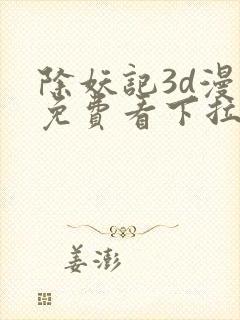 除妖记3d漫
免费看下拉
姜澎